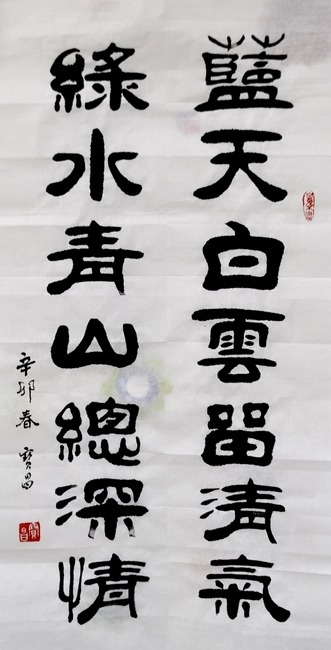 藍天白雲留清氣
綠水青山總深情
辛卯春 寶昌
寶昌